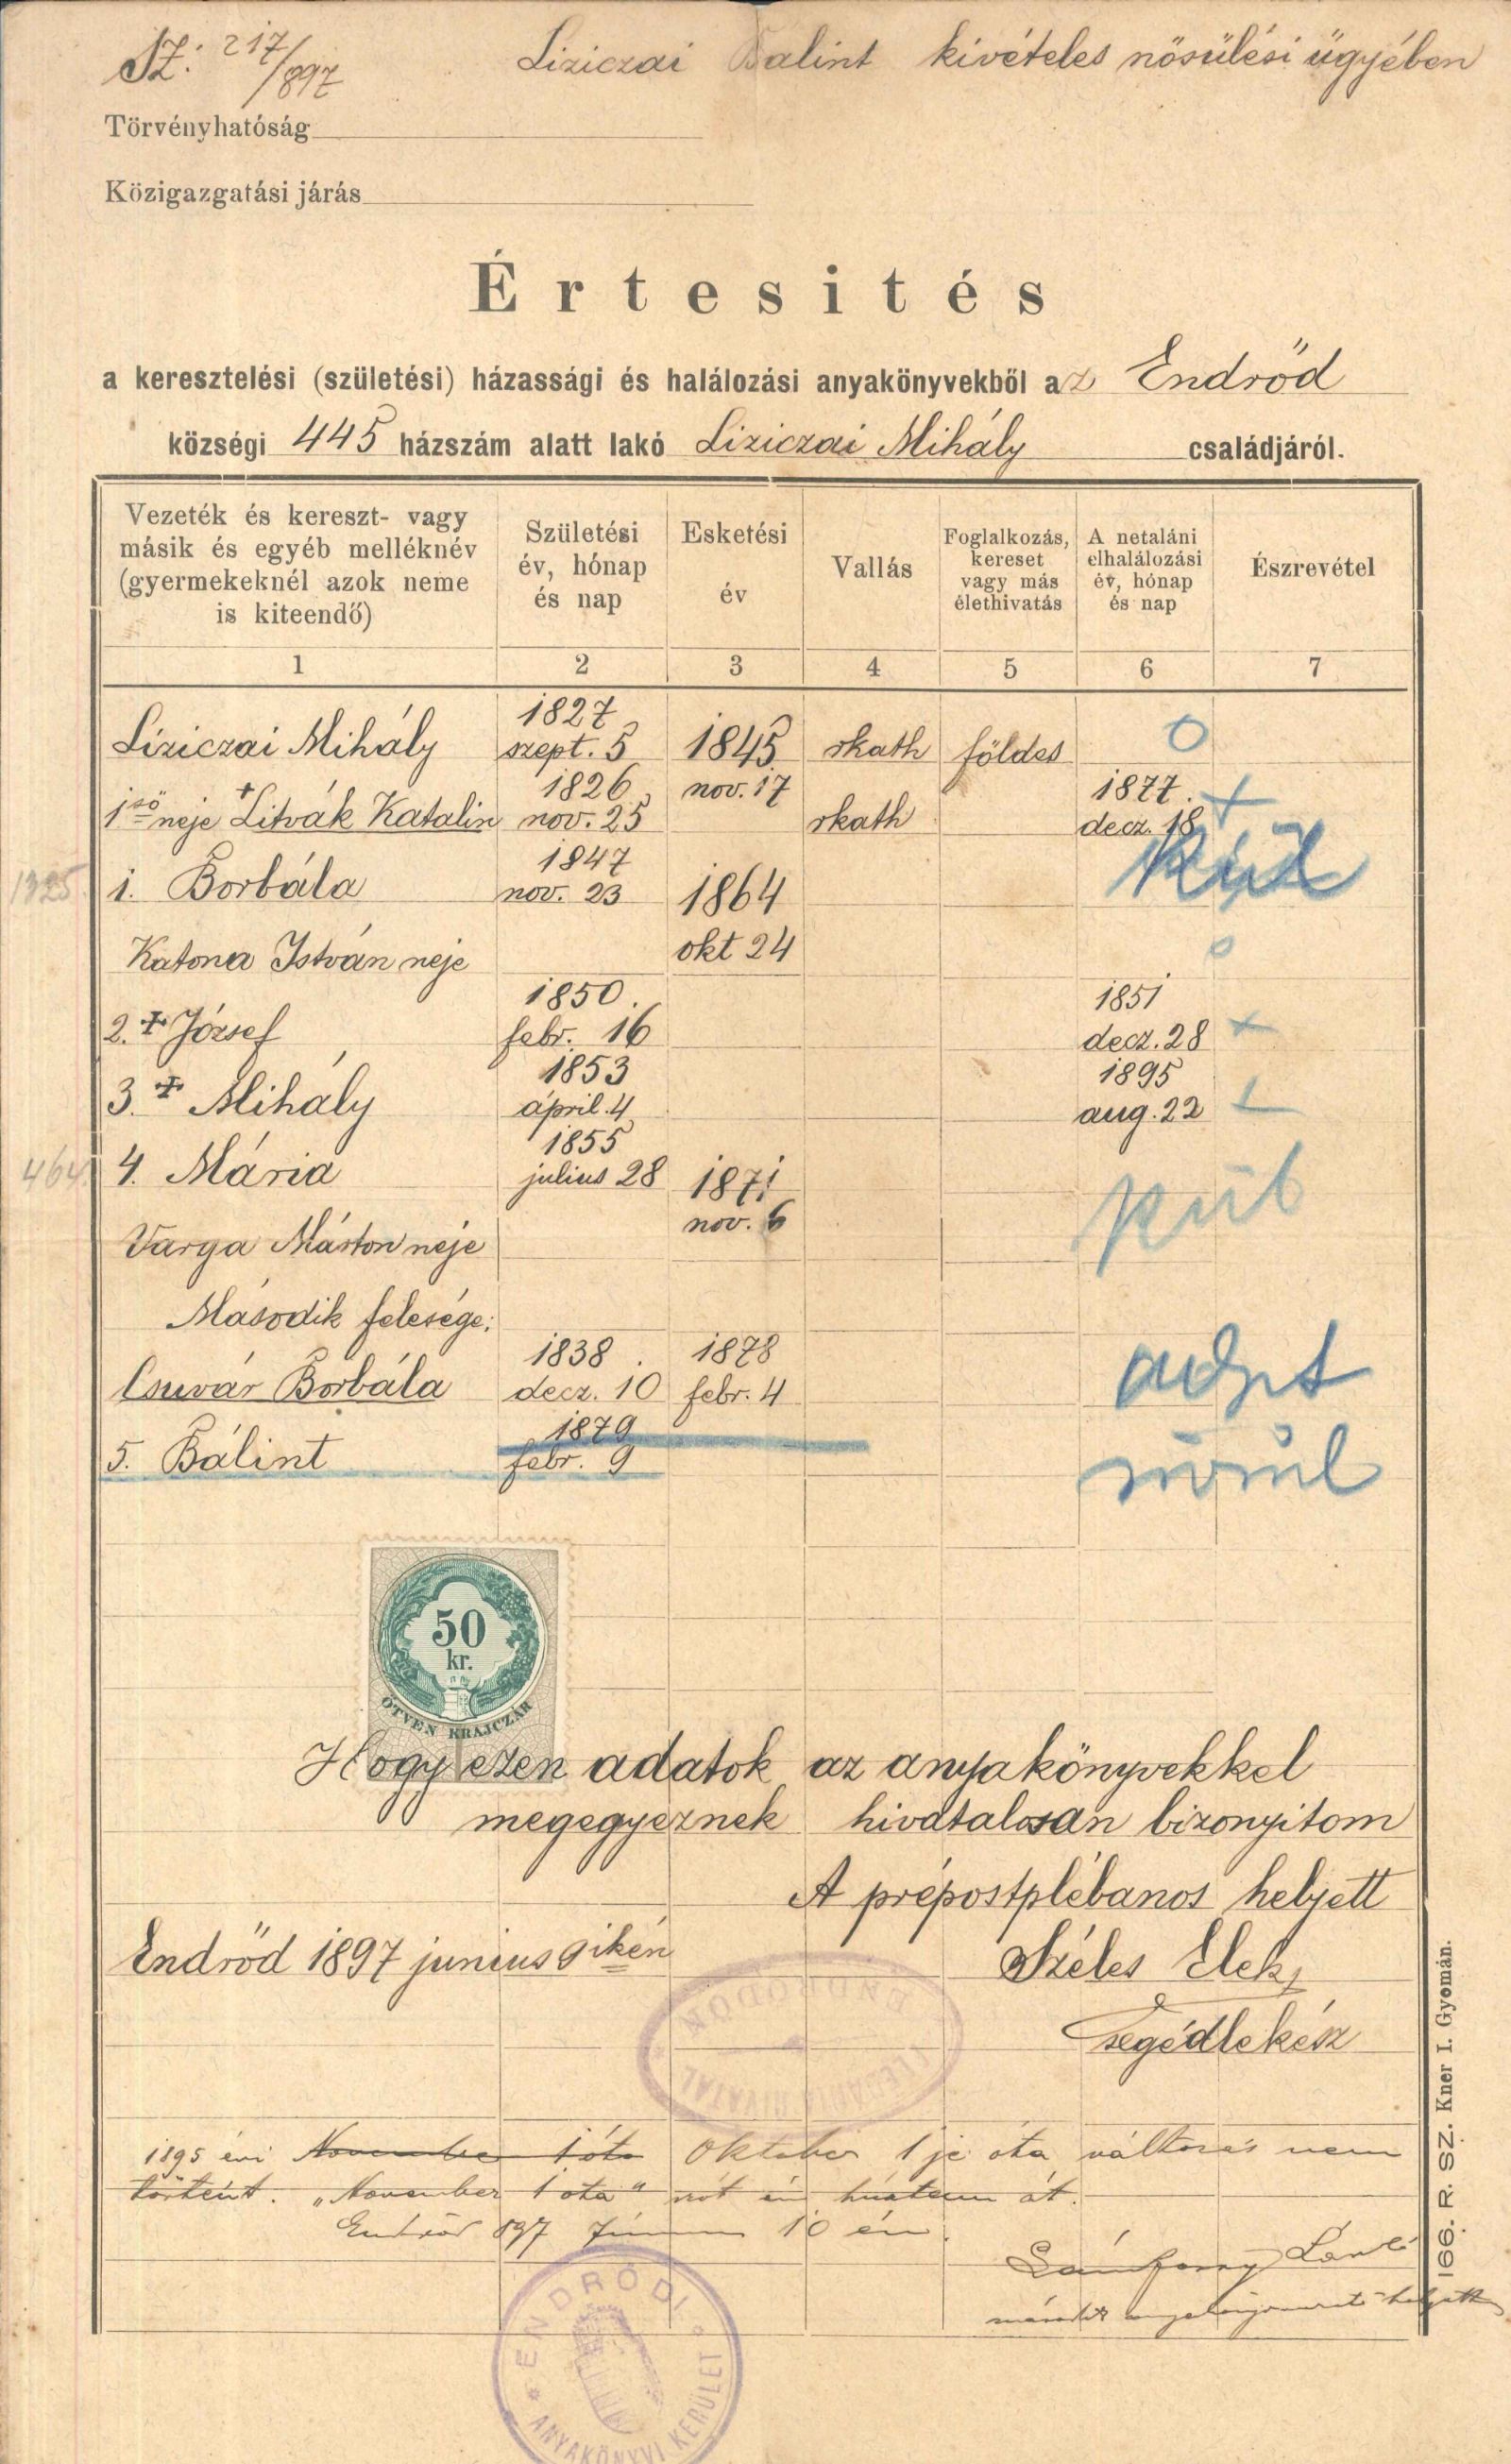 Sz: 217/897
Liziczai Bálint kivételes nősülési ügyében
Törvényhatóság
Közigazgatási járás
Értesités
a keresztelési (születési) házassági és halálozási anyakönyvekből az Endrőd
községi 445 házszám alatt lakó Liziczai Mihály családjáról.
Vezeték és kereszt- vagy másik és egyéb melléknév (gyermekeknél azok neme is kiteendő)
Születési év, hónap és nap
Esketési év
Vallás
Foglalkozás, kereset vagy más élethivatás
A netaláni elhalálozási év, hónap és nap
Észrevétel
1 2 3 4 5 6 7
Liziczai Mihály 1827 szept. 5 1845 nov. 17 rkath földes 0
1ső neje + Litvák Katalin 1826 nov. 25 rkath 1877. decz. 18 +
1325. 1. Borbála 1847 nov. 23 1864 okt 24
Katona István neje 0
2. + József 1850. febr. 16 1851 decz. 28 +
3. + Mihály 1853 ápril. 4 1895 aug. 22 +
464 4. Mária 1855 július 28 1871 nov. 6
Varga Márton neje
Második felesége:
Csuvár Borbála 1838. decz. 10 1878 febr. 4
5. Bálint 1879 febr. 9
50
kr.
ÖTVEN KRAJCZÁR
Hogy ezen adatok az anyakönyvekkel
megegyeznek hivatalosan bizonyitom
A prépostplébános helyett
Endrőd 1897 junius 9ikén
Széles Elek
segédlelkész
PLÉBÁNIA HIVATAL ENDRŐDÖN
1895 évi November 1 óta Október 1 je óta változás nem
történt. „November 1 óta" szót én húztam át.
Endrőd 897 Június 10 én.
ENDRŐDI
ANYAKÖNYVI KERÜLET
166. R. SZ. Kner I. Gyomán.